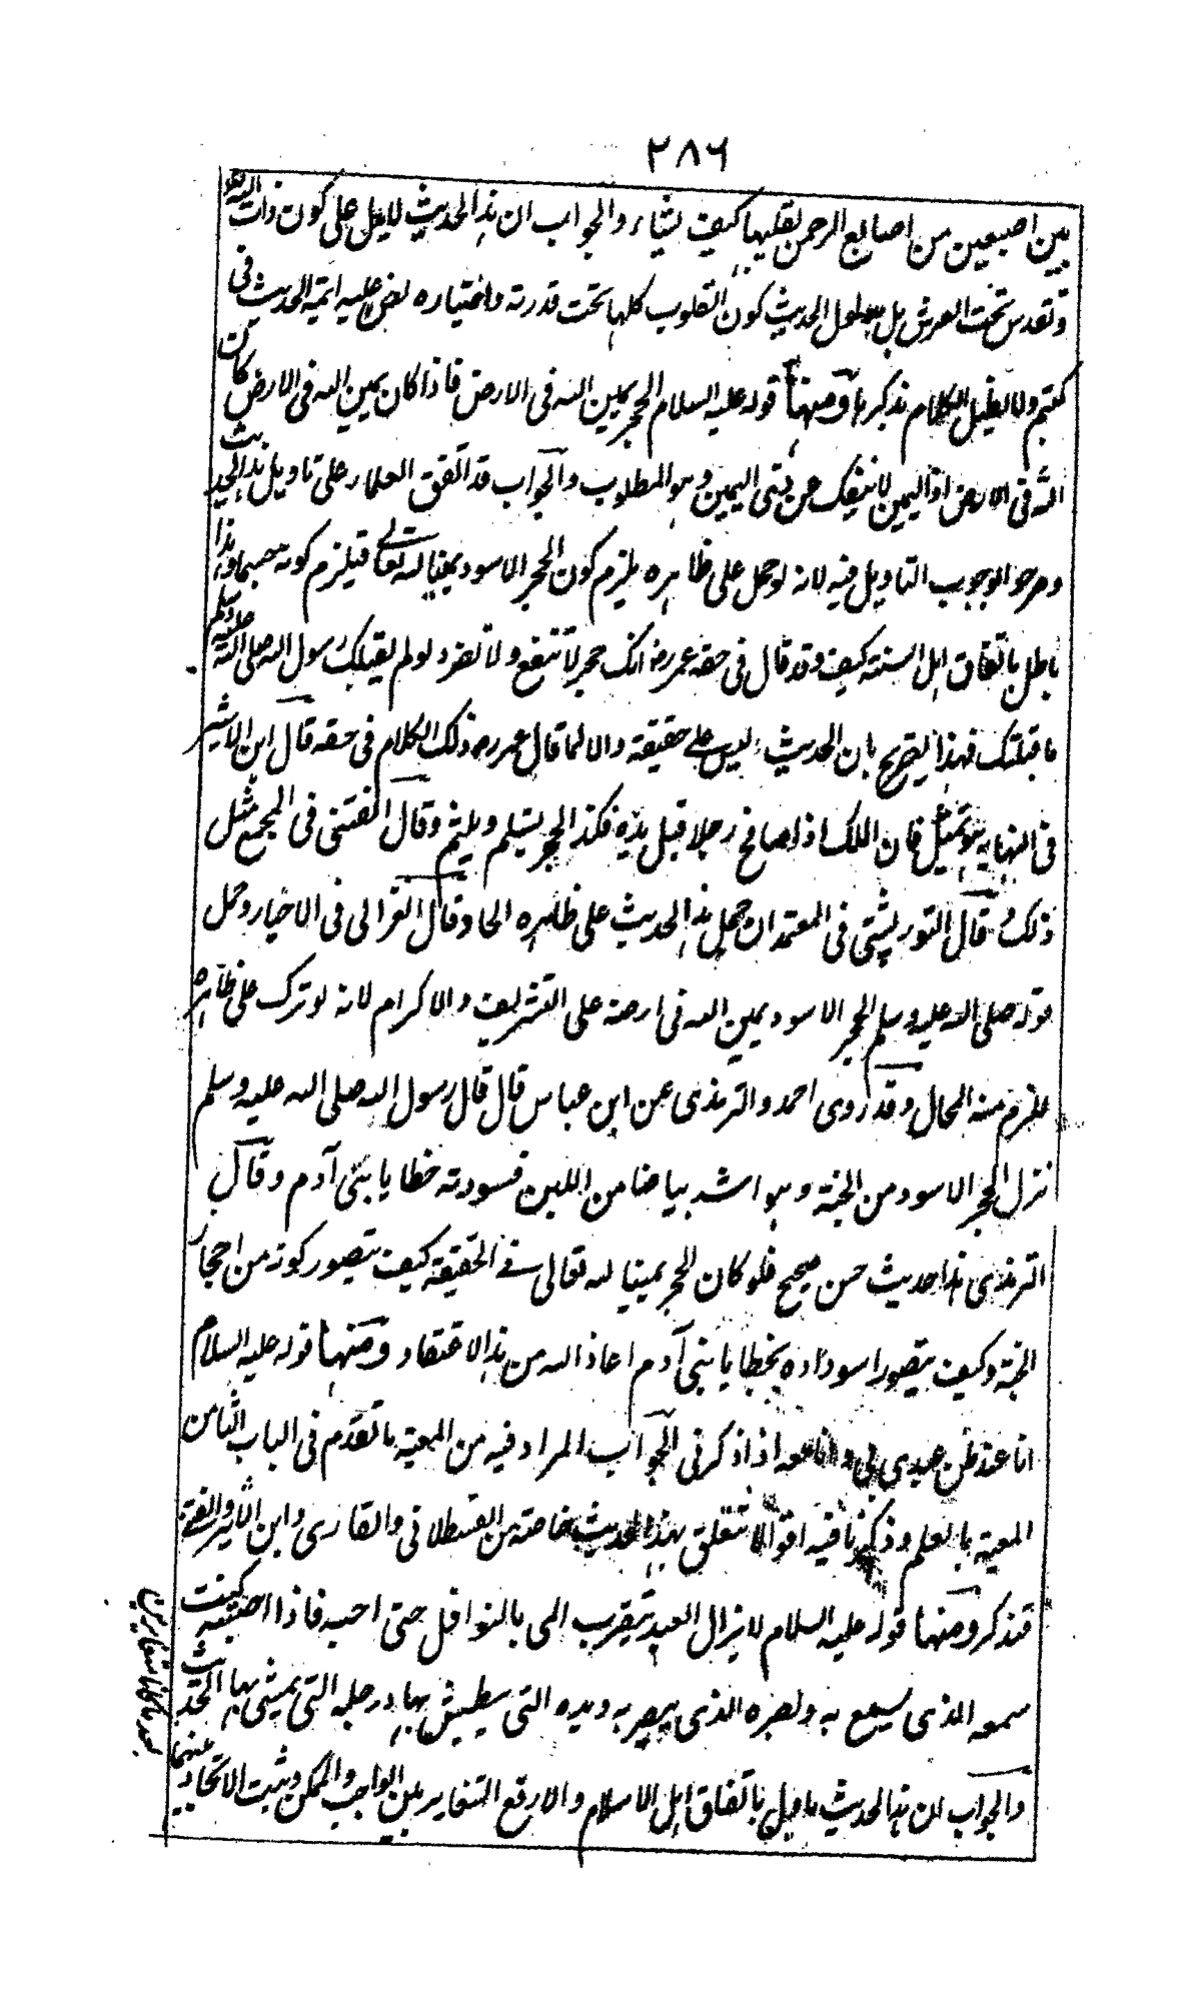 ٢٨٦
بين اصبعين من اصابع الرحمن يقلبها كيف يشاء والجواب ان هذا الحديث لا يدل على كون ذات الله
وتقدس تحت العرش بل مدلول الحديث كون القلوب كلها تحت قدرته واختياره نص عليه ائمة الحديث فى
كتبهم ولا نطيل الكلام بذكرها ومنها قوله عليه السلام الحجر يمين الله فى الارض فاذا كان يمين الله فى الارض كان
الله فى الارض اذ اليمين لا ينفك عن ذى اليمين وهو المطلوب والجواب قد اتفق العلماء على تاويل هذا الحديث
وصرحوا لوجوب التاويل فيه لانه لو حمل على ظاهره يلزم كون الحجر الاسود يمينا لله تعالى فيلزم كونه جسما وهذا
باطل باتفاق اهل السنة كيف وقد قال فى حقه عمر رض انك حجر لا تنفع ولا تضر ولو لم يقبلك رسول الله صلى الله عليه وسلم
ما قبلتك فهذا يصرح بان الحديث ليس على حقيقة والا لما قال عمر رض ذلك الكلام فى حقه قال ابن الاثير
فى النهاية هو تمثيل فان الملك اذا صافح رجلا قبل يده فكذا الحجر يستلم ويلثم وقال الفتنى فى المجمع مثل
ذلك قال التورپشتى فى المعتمد ان حمل هذا الحديث على ظاهره الحاد وقال الغزالى فى الاخيار وحمل
قوله صلى الله عليه وسلم الحجر الاسود يمين الله فى ارضه على التشريف والاكرام لانه لو ترك على ظاهره
يلزم منه المحال وقد روى احمد والترمذى عن ابن عباس قال قال رسول الله صلى الله عليه وسلم
نزل الحجر الاسود من الجنة وهو اشد بياضا من اللبن فسودته خطايا بنى آدم وقال
الترمذى هذا حديث حسن صحيح فلو كان الحجر يمينا لله تعالى فى الحقيقة كيف يتصور كونه من احجار
الجنة وكيف يتصور اسوداده بخطايا بنى آدم اعاذ الله من هذا الاعتقاد ومنها قوله عليه السلام
انا عند ظن عبدى بى وانا معه اذا ذكرنى الجواب المراد فيه من المعية ما تقدم فى الباب الثامن
المعية بالعلم وذكرنا فيه اقوالا تتعلق بهذا الحديث خاصة من القسطلانى والقارى وابن الاثير والفتنى
فتذكر ومنها قوله عليه السلام لا يزال العبد يتقرب الى بالنوافل حتى احبه فاذا احببته كنت
سمعه الذى يسمع به وبصره الذى يبصر به ويده التى يبطش بها ورجله التى يمشى بها الحديث
والجواب ان هذا الحديث ماول باتفاق اهل الاسلام والا رفع التغاير بين الواجب والممكن ويثبت الاتحاد بينهما